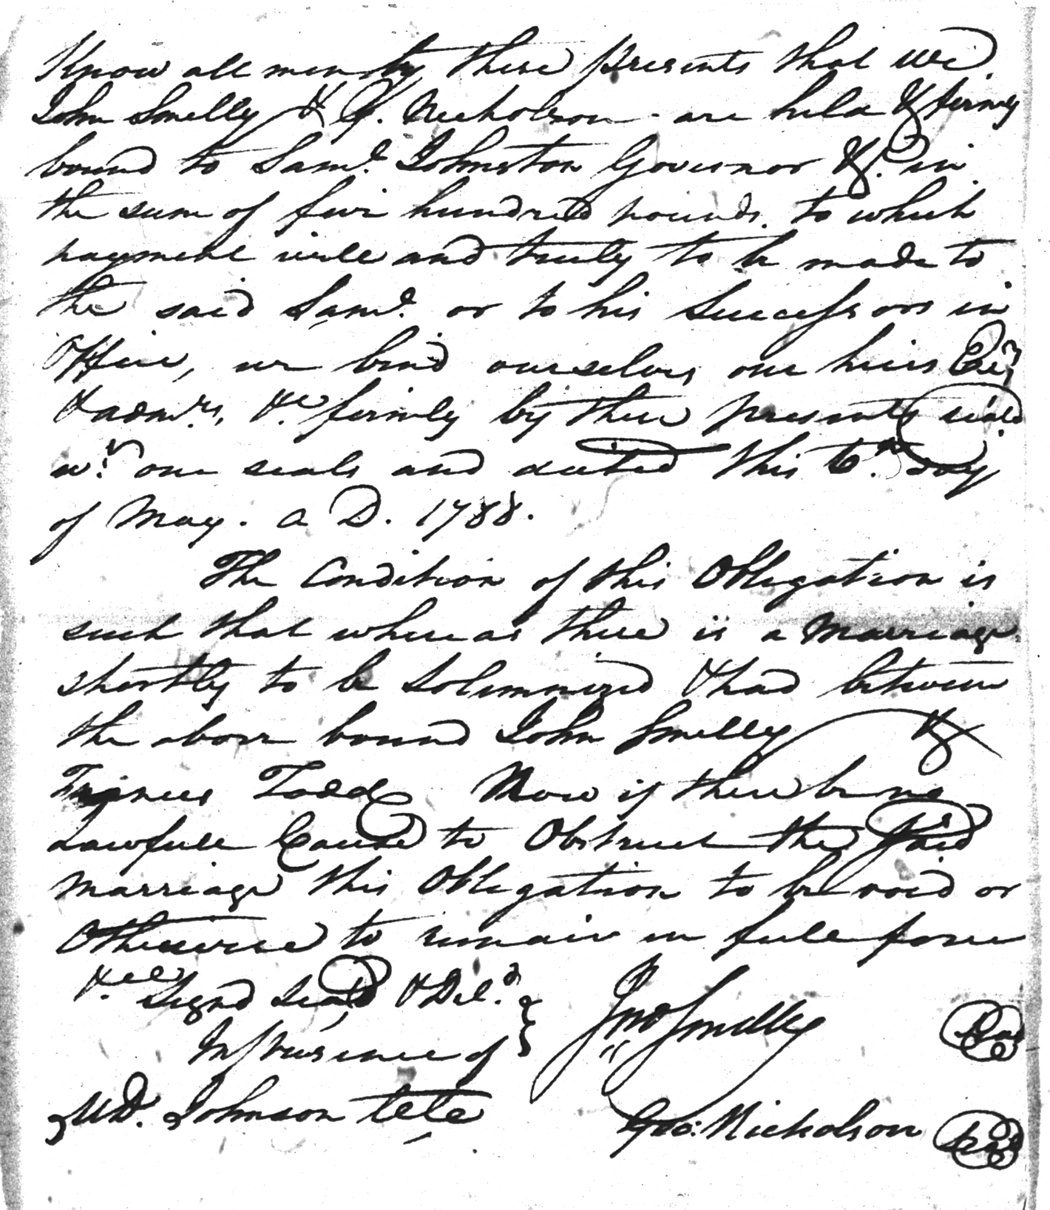 Know all men by these presents that we
John Smelly & G. Nicholson are held & firmly
bound to Saml. Johnston Governor &c. in
the sum of five hundred pounds. to which
payment will and truly to be made to
the said Saml. or to his Successors in
Office, we bind ourselves our heirs Exrs
& admrs. &c firmly by these presents seald
wt. our seals and dated this 6th day
of May. A D. 1788.
The Condition of this Obligation is
such that whereas there is a marriage
shortly to be solemnized & had between
the above bound John Smelly &
Frances Todd Now if there be no
Lawfull Cause to Obstruct the said
marriage this Obligation to be void or
Otherwise to remain in full force
&c Signd Seald & Deld.
In presence of
Wd. Johnson
Jno Smelly Seal
Geo: Nicholson Seal